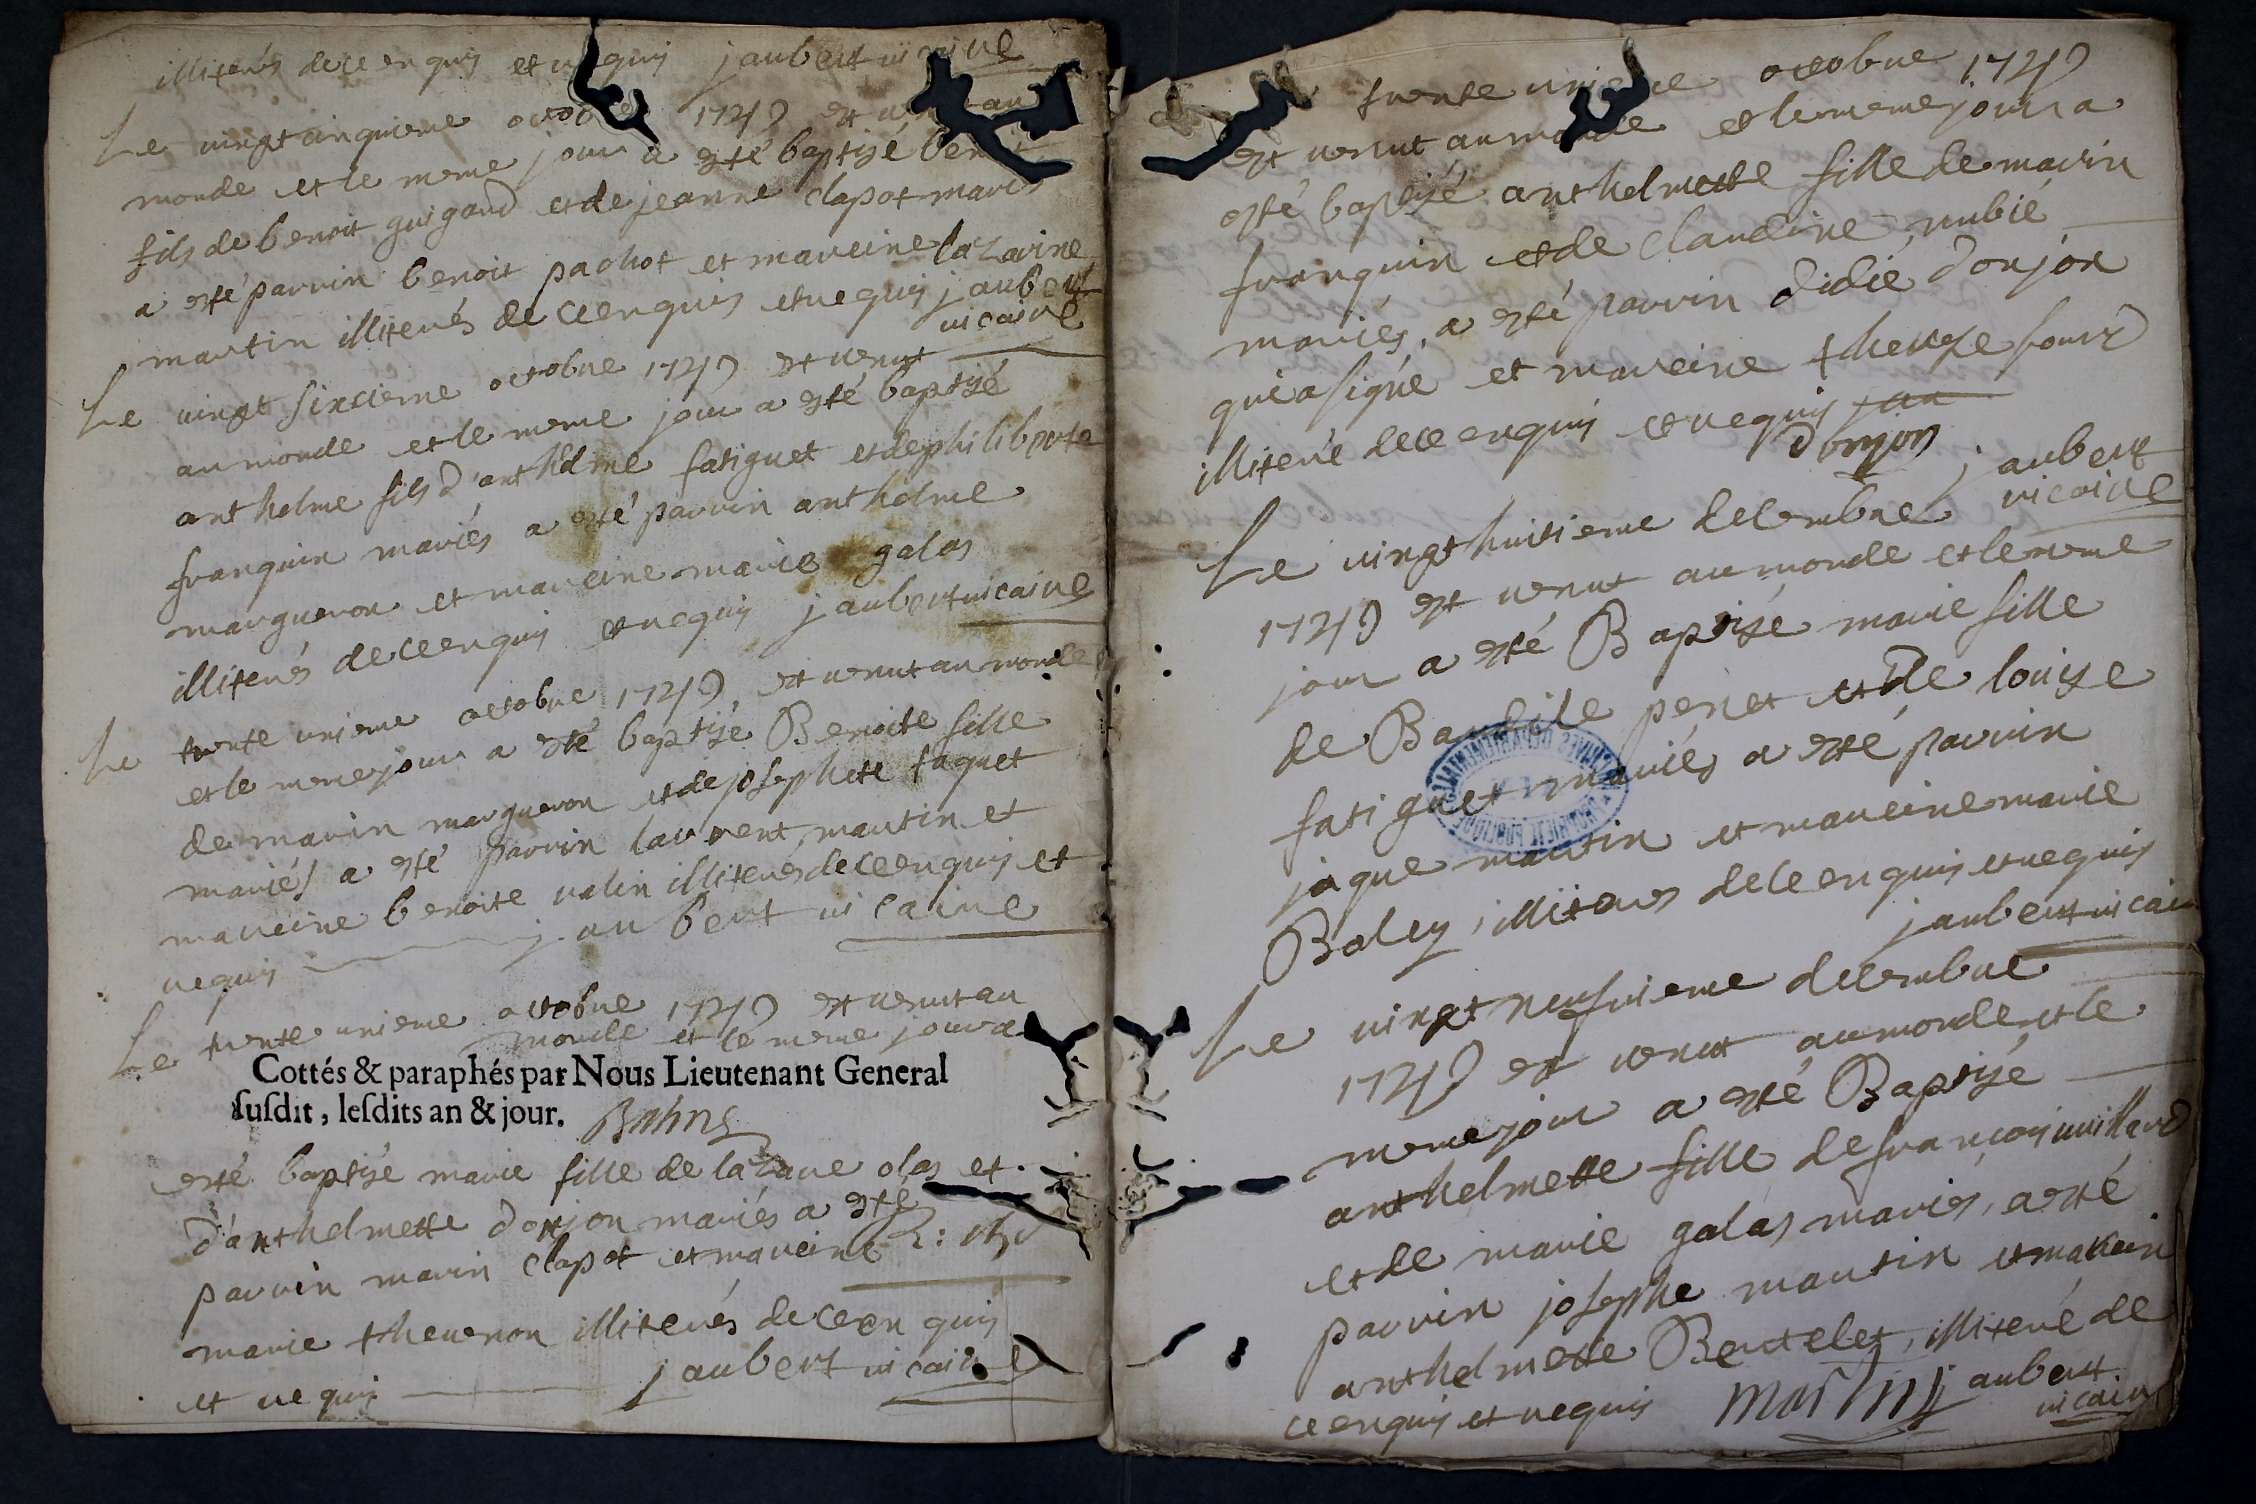 illiterés de ce enquis et requis jaubert vicaire
Le vingt cinquieme octobre 1749 est venut au
monde et le meme jour a esté baptisé benoit
fils de benoit guigard et de jeanne clapot mariés
a esté parrin benoit pachot et mareine lazarine
martin illiterés de ce enquis et requis jaubert
vicaire
Le vingt sixcieme octobre 1749 est venut
au monde et le meme jour a esté baptisé
anthelme fils d'anthelme fatiguet et de philiberte
franquin mariés a esté parrin anthelme
margueron et mareine marie galas
illiterés de ce enquis et requis jaubert vicaire
Le trente unieme octobre 1749 est venut au monde
et le meme jour a esté baptisé Benoite fille
de marin margueron et de josephete taquet
mariés a esté parrin laurent martin et
mareine benoite valin illiterés de ce enquis et
requis jaubert vicaire
Le trente unieme octobre 1749 est venut au
monde et le meme jour a
Cottés & paraphés par Nous Lieutenant General
susdit, lesdits an & jour.
esté baptisé marie fille de lazare olas et
d'anthelmette donjon mariés a esté
parrin marin clapot et mareine
marie thevenon illiterés de ce en quis
et requis jaubert vicaire
trente unieme octobre 1749
est venut au monde et le meme jour a
esté baptisé anthelmette fille de marin
franquin et de claudine rubié
mariés, a esté parrin didié donjon
qui a signé et mareine
illiteré de ce enquis et requis
donjon jaubert
vicaire
Le vingt huitieme decembre
1749 est venut au monde et le meme
jour a esté Baptisé marie fille
de peret et de louise
fatiguet mariés a esté parrin
jaque martin et mareine marie
Boley, illiterés de ce enquis et requis
jaubert vicai
Le vingt neufvieme decembre
1749 est venut au monde et le
meme jour a esté Baptisé
anthelmette fille de francois vuillard
et de marie galas mariés, a esté
parrin josephe martin et marein
anthelmette Bertelet, illiteré de
ce enquis et requis martin jaubert
vicaire